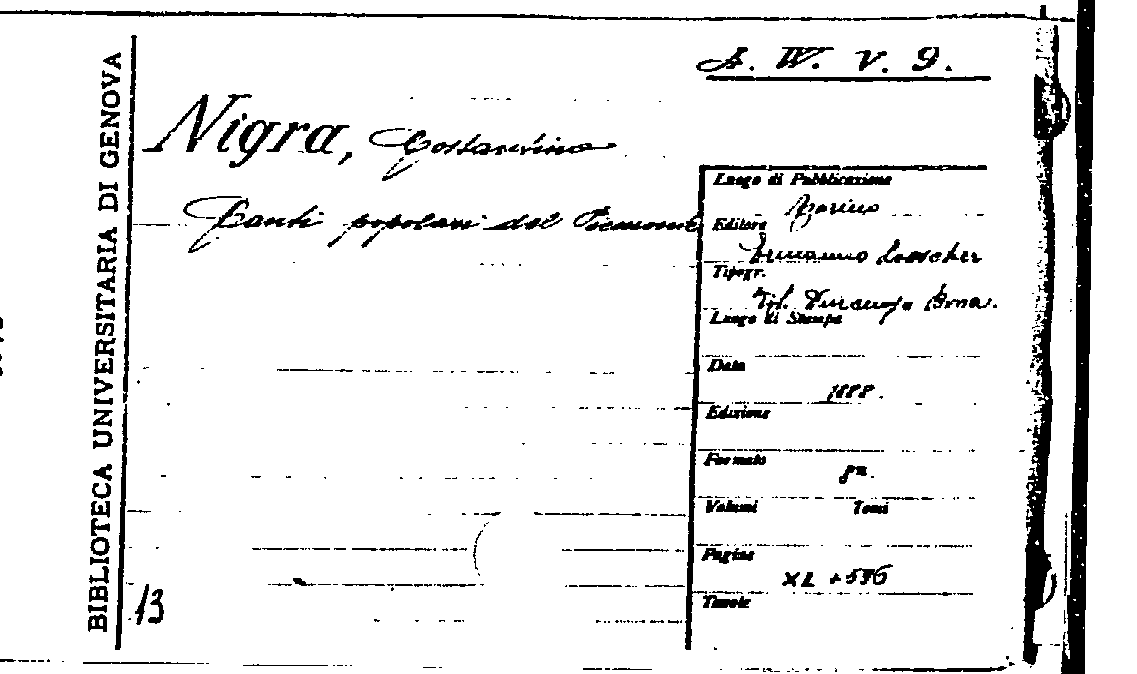 BIBLIOTECA UNIVERSITARIA DI GENOVA
A. W. V. 9.
Nigra, Costantino
Canti popolari del Piemonte
Luogo di Pubblicazione
Torino
Editore
Ermanno Loescher
Tipogr.
Tip. Vincenzo Bona.
Luogo di Stampa
Data
1888.
Edizione
Formato
8º.
Volumi Tomi
Pagine
XL + 596
Tavole
13